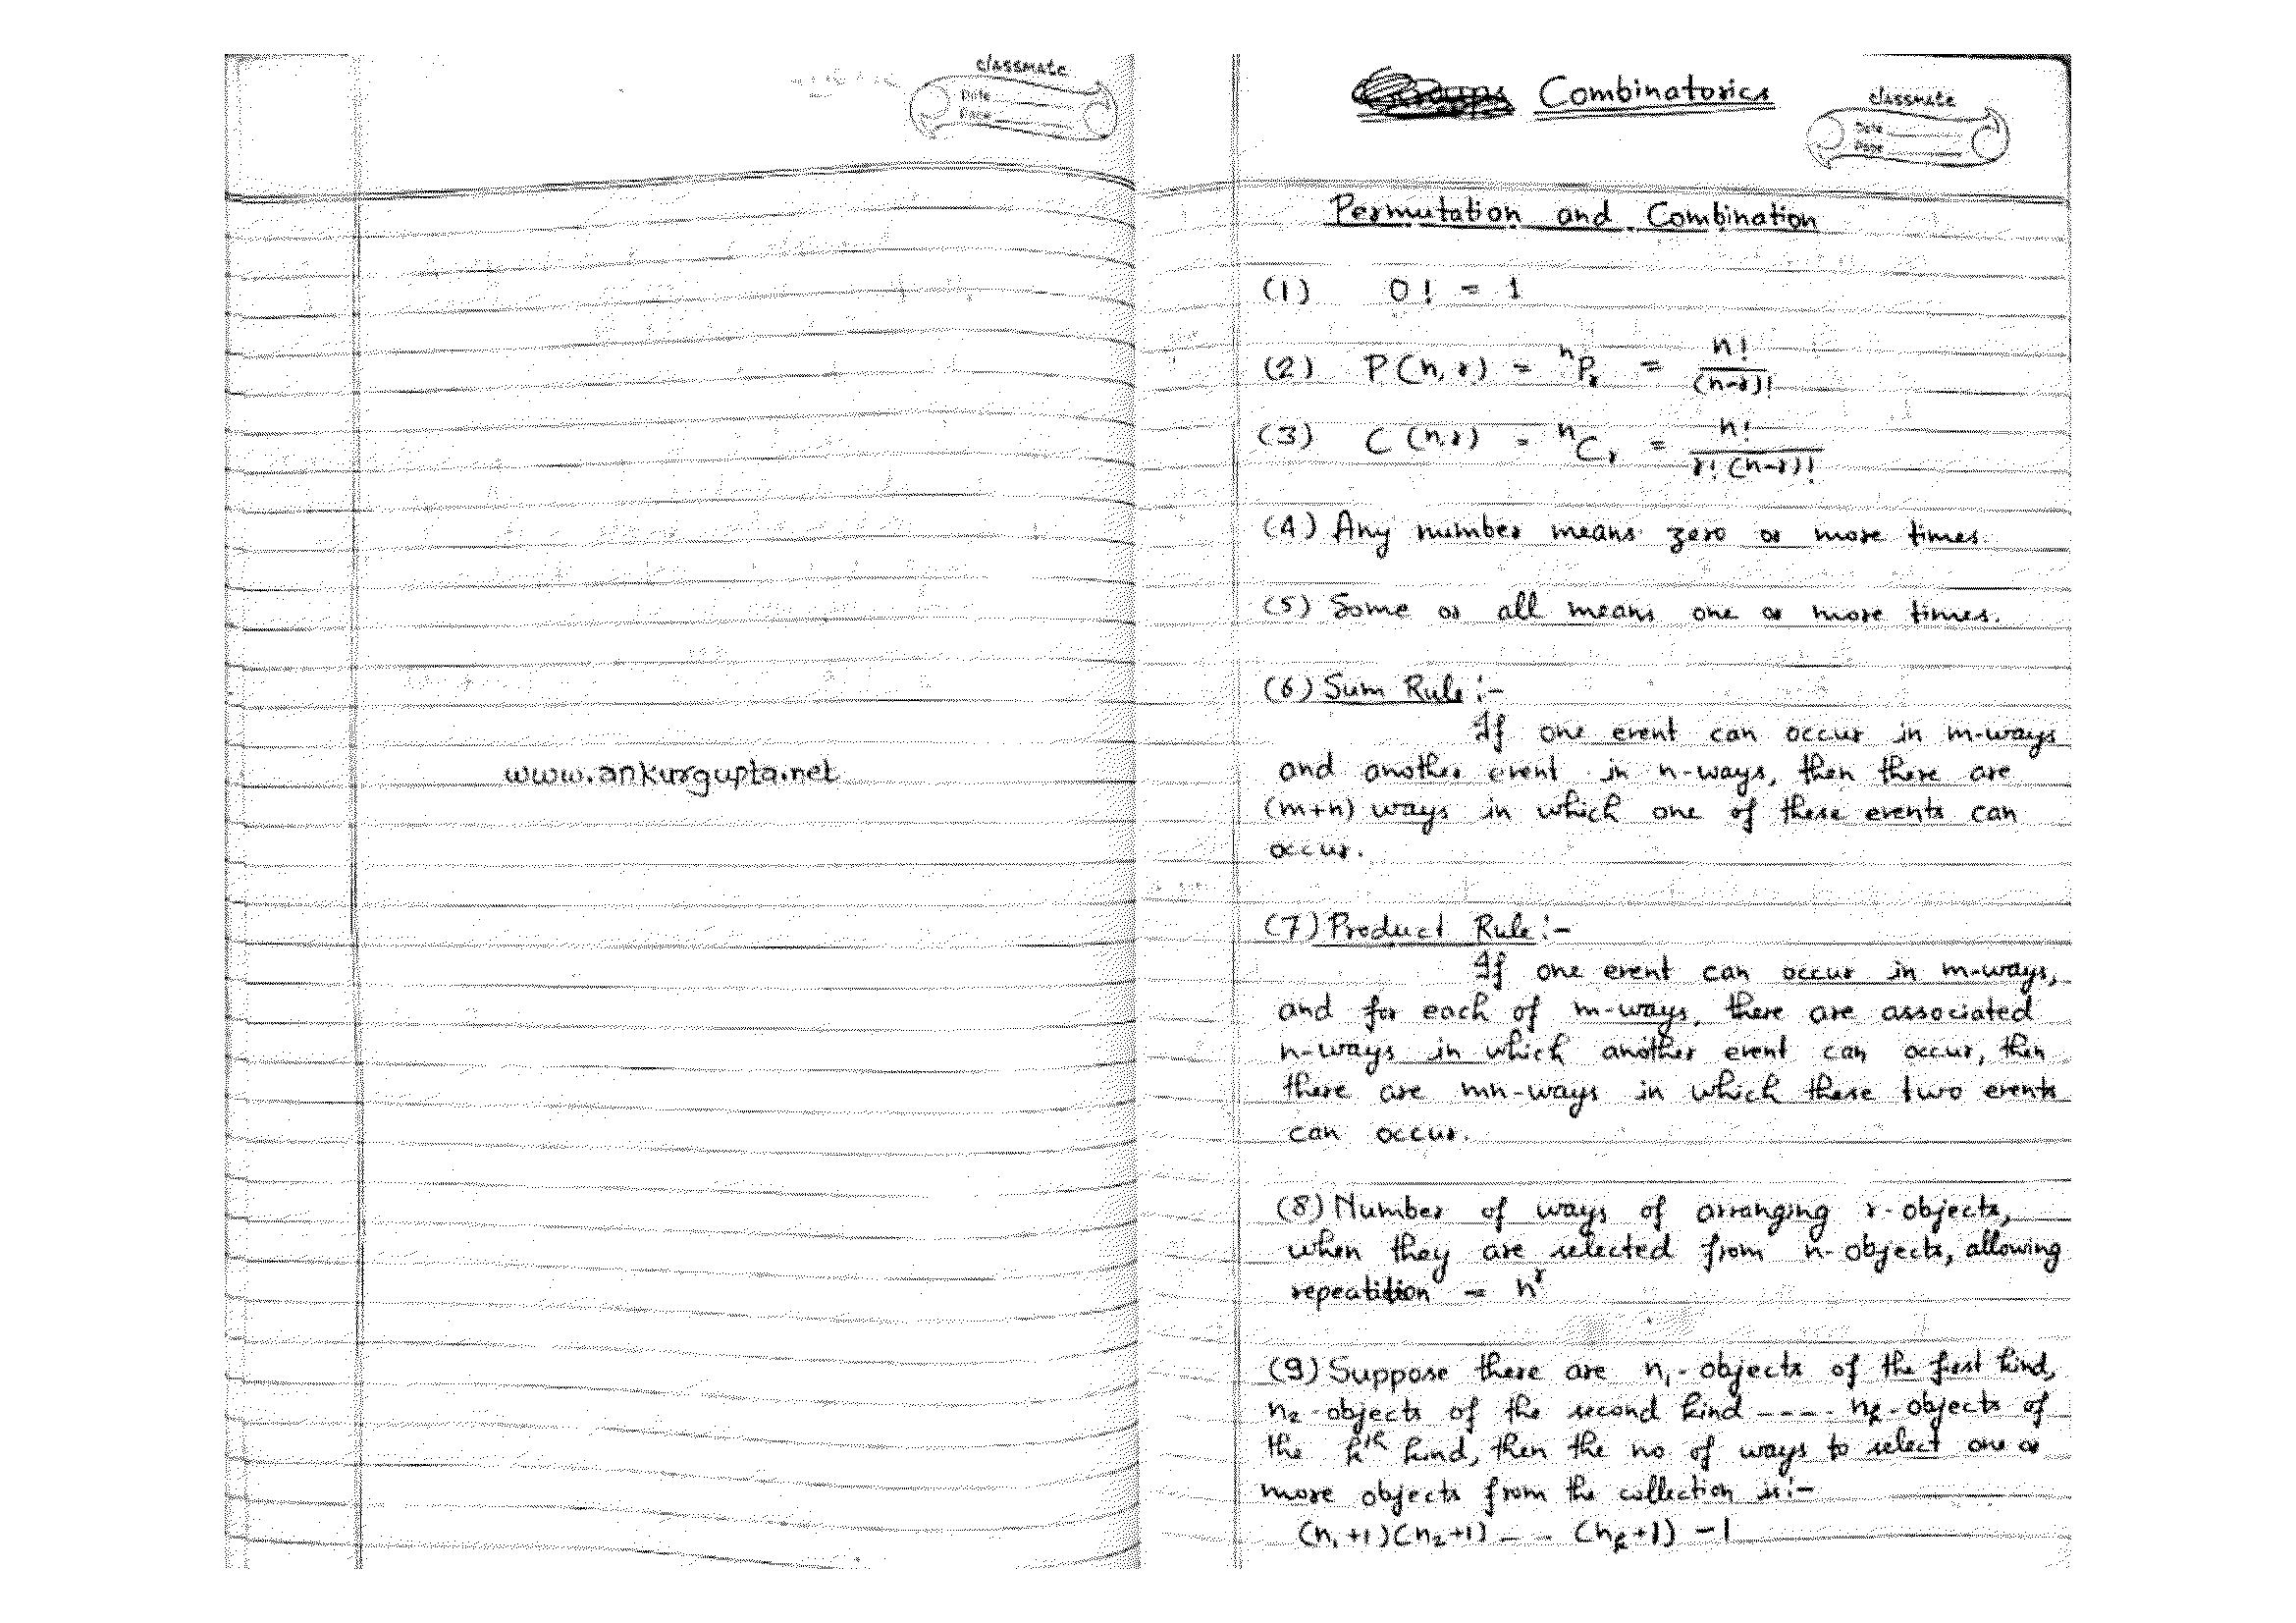 classmate
Date
Page
www.ankurgupta.net
Combinatorics
classmate
Date
Page
Permutation and Combination
(1) 0! = 1
(2) P(n,r) = ⁿPᵣ = n!/(n-r)!
(3) C(n,r) = ⁿCᵣ = n!/r!(n-r)!
(4) Any number means zero or more times.
(5) Some or all means one or more times.
(6) Sum Rule:-
If one event can occur in m-ways
and another event in n-ways, then there are
(m+n) ways in which one of these events can
occur.
(7) Product Rule:-
If one event can occur in m-ways,
and for each of m-ways, there are associated
n-ways in which another event can occur, then
there are mn-ways in which these two events
can occur.
(8) Number of ways of arranging r-objects,
when they are selected from n-objects, allowing
repeatition = nʳ
(9) Suppose there are n₁-objects of the first kind,
n₂-objects of the second kind ---- nₖ-objects of
the kᵗʰ kind, then the no of ways to select one or
more objects from the collection is:-
(n₁+1)(n₂+1) -- (nₖ+1) -1